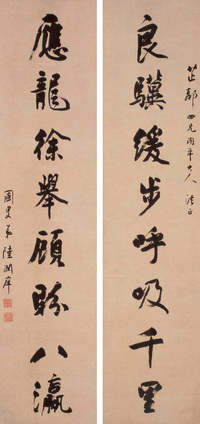 芷鄰四兄同年大人法正
良驥緩步呼吸千里
應龍徐舉顧盼八瀛
國史弟陸潤庠